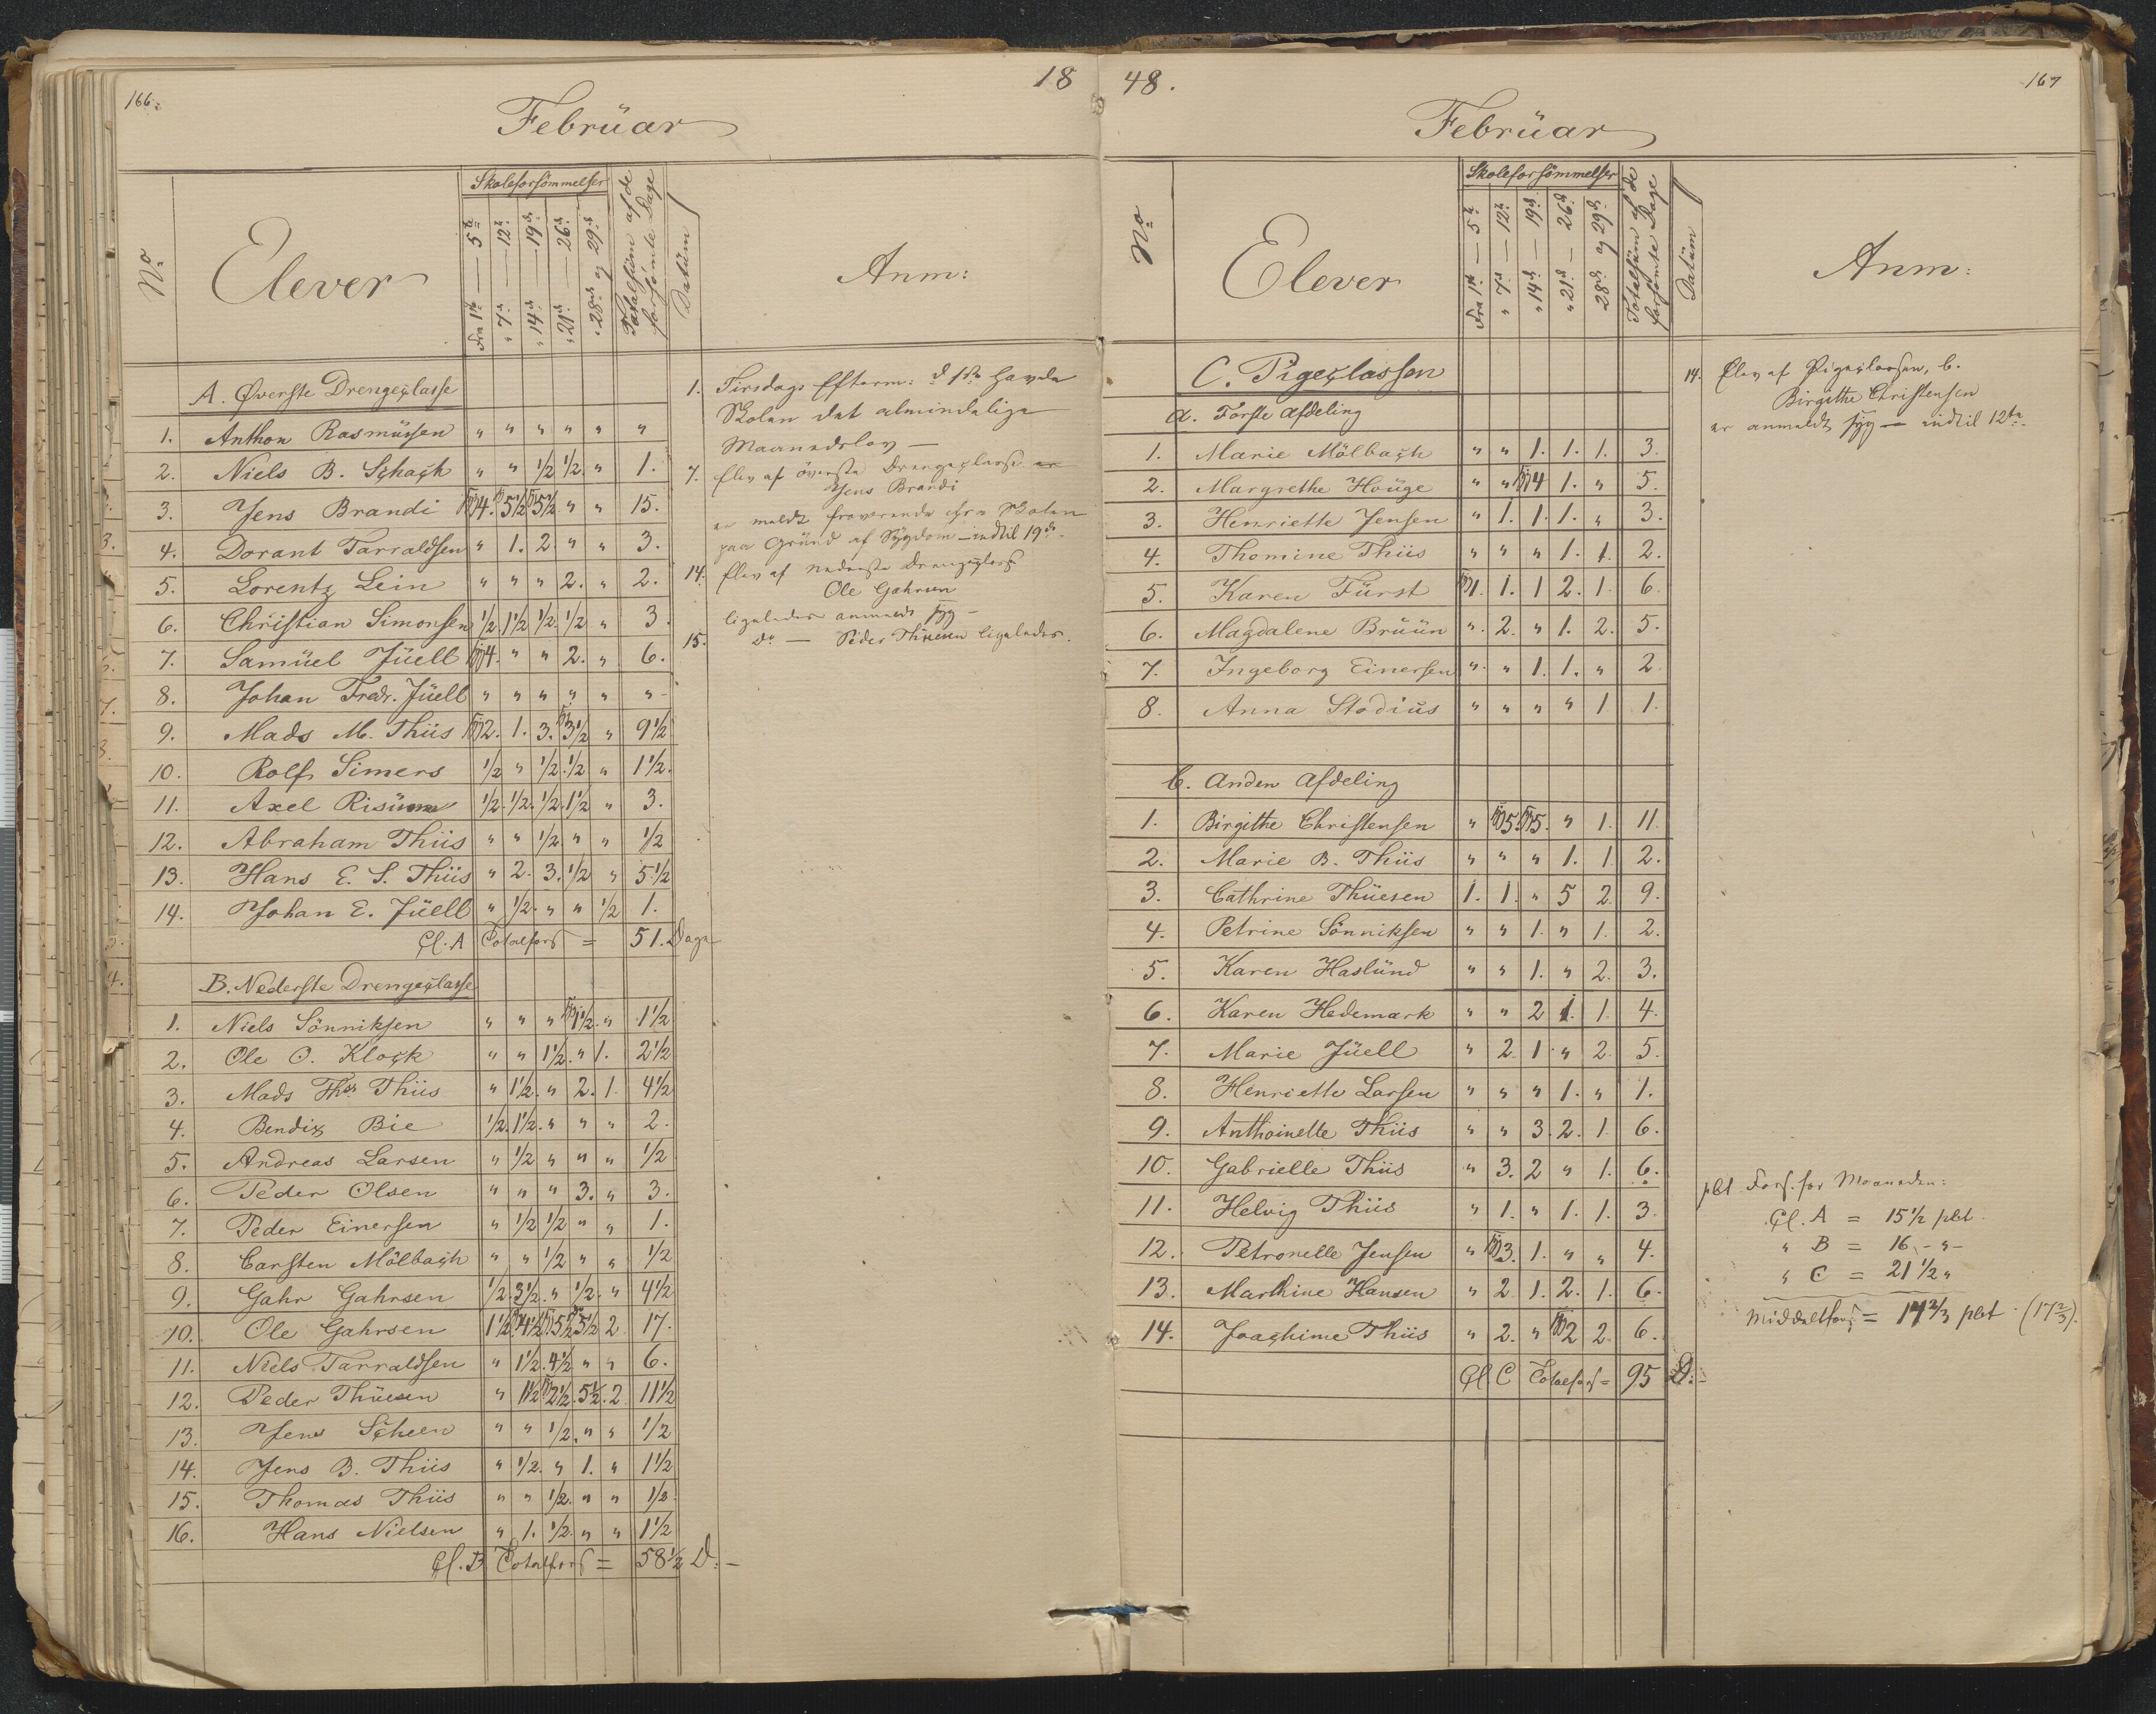 166.
18
Februar
No
Elever
Skoleforsömmelser
Fra 1ste — 5te
" 7de — 12te
" 14de — 19de
" 21de — 26de
" 28de og 29de
Totalsum af de forsömte Dage
Datüm
Anm:
A. Øverste Drengeclasse
1. Anthon Rasmüssen " " " " " "
2. Niels B. Schach " " 1/2 1/2 " 1.
3. Jens Brandi 4. 5 1/2 5 1/2 " " 15.
4. Dorant Tarraldsen " 1. 2. " " 3.
5. Lorentz Lein " " " 2. " 2.
6. Christian Simonsen 1/2 1 1/2 1/2 1/2 " 3
7. Samüel Jüell 4. " " 2. " 6.
8. Johan Fredr. Jüell " " " " " "
9. Mads M. Thiis 2. 1. 3. 3 1/2 " 9 1/2
10. Rolf Simers 1/2 " 1/2 1/2 " 1 1/2.
11. Axel Risüm 1/2. 1/2. 1/2. 1 1/2 " 3.
12. Abraham Thiis " " 1/2 " " 1/2
13. Hans E. S. Thiis " 2. 3. 1/2 " 5 1/2
14. Johan E. Jüell " 1/2. " " 1/2 1.
Cl. A Totalfors = 51. Dage
B. Nederste Drengeclasse
1. Niels Sönniksen " " " 1 1/2. " 1 1/2
2. Ole O. Klock " " 1 1/2. " 1. 2 1/2
3. Mads Ths. Thiis " 1 1/2. " 2. 1. 4 1/2
4. Bendix Bie 1/2. 1 1/2. " " " 2.
5. Andreas Larsen " 1/2 " " " 1/2
6. Peder Olsen " " " 3. " 3.
7. Peder Einersen " 1/2 1/2 " " 1.
8. Carsten Mölbach " " 1/2 " " 1/2
9. Gahr Gahrsen 1/2. 3 1/2. " 1/2. " 4 1/2
10. Ole Gahrsen 1 1/2 4 1/2 5 1/2 5 1/2 2 17.
11. Niels Tarraldsen " 1 1/2. 4 1/2 " " 6.
12. Peder Thüesen " 1 1/2 2 1/2. 5 1/2. 2 11 1/2
13. Jens Scheen " " 1/2. " " 1/2
14. Jens B. Thiis " 1/2. " 1. " 1 1/2
15. Thomas Thiis " " 1/2. " " 1/2.
16. Hans Nielsen " 1. 1/2. " " 1 1/2
Cl. B Totalfors = 58 1/2 D:
1. Tirsdags Efterm: d 1ste havde
Skolen det almindelige
Maanedslov —
7. Elev af överste Drengeclasse er
Jens Brandi
er meldt fraværende fra Skolen
paa Gründ af Sygdom — indtil 19de.
14. Elev af nederste Drengeclasse
Ole Gahrsen
ligeledes anmeldt syg —
15. do — Peder Thüesen ligeledes.
48.
167
Februar
No
Elever
Skoleforsömmelser
Fra 1ste — 5te
" 7de — 12te
" 14de — 19de
" 21de — 26de
" 28de og 29de
Totalsüm af de forsömte Dage
Datüm
Anm:
C. Pigeclassen
a. Förste Afdeling
1. Marie Mölbach " " 1. 1. 1. 3.
2. Margrethe Houge " " 4 1. " 5.
3. Henriette Jensen " 1. 1. 1. " 3.
4. Thomine Thiis " " " 1. 1. 2.
5. Karen Fürst 1. 1. 1 2. 1. 6.
6. Magdalene Brüün " 2. " 1. 2. 5.
7. Ingeborg Einersen " " 1. 1. " 2.
8. Anna Stodiüs " " " " 1 1.
b. Anden Afdeling
1. Birgithe Christensen " 5. 5. " 1. 11.
2. Marie B. Thiis " " " 1. 1. 2.
3. Cathrine Thüesen 1. 1. " 5 2. 9.
4. Petrine Sönniksen " " 1. " 1. 2.
5. Karen Haslünd " " 1. " 2. 3.
6. Karen Hedemark " " 2 1. 1. 4.
7. Marie Jüell " 2. 1. " 2. 5.
8. Henriette Larsen " " " 1. " 1.
9. Anthoinette Thiis " " 3. 2. 1. 6.
10. Gabrielle Thiis " 3. 2 " 1. 6.
11. Helvig Thiis " 1. " 1. 1. 3.
12. Petronelle Jensen " 3. 1. " " 4.
13. Marthine Hansen " 2 1. 2. 1. 6.
14. Joachime Thiis " 2. " 2 2. 6.
Cl. C Totalfors = 95 D:
14. Elev af Pigeclassen, b.
Birgithe Christensen
er anmeldt syg — indtil 12te.
pCt Fors. for Maaneden:
Cl. A = 15 1/2 pCt.
" B = 16 - " -
" C = 21 1/2 "
Middeltfors = 17 2/3 pCt (17 2/3).